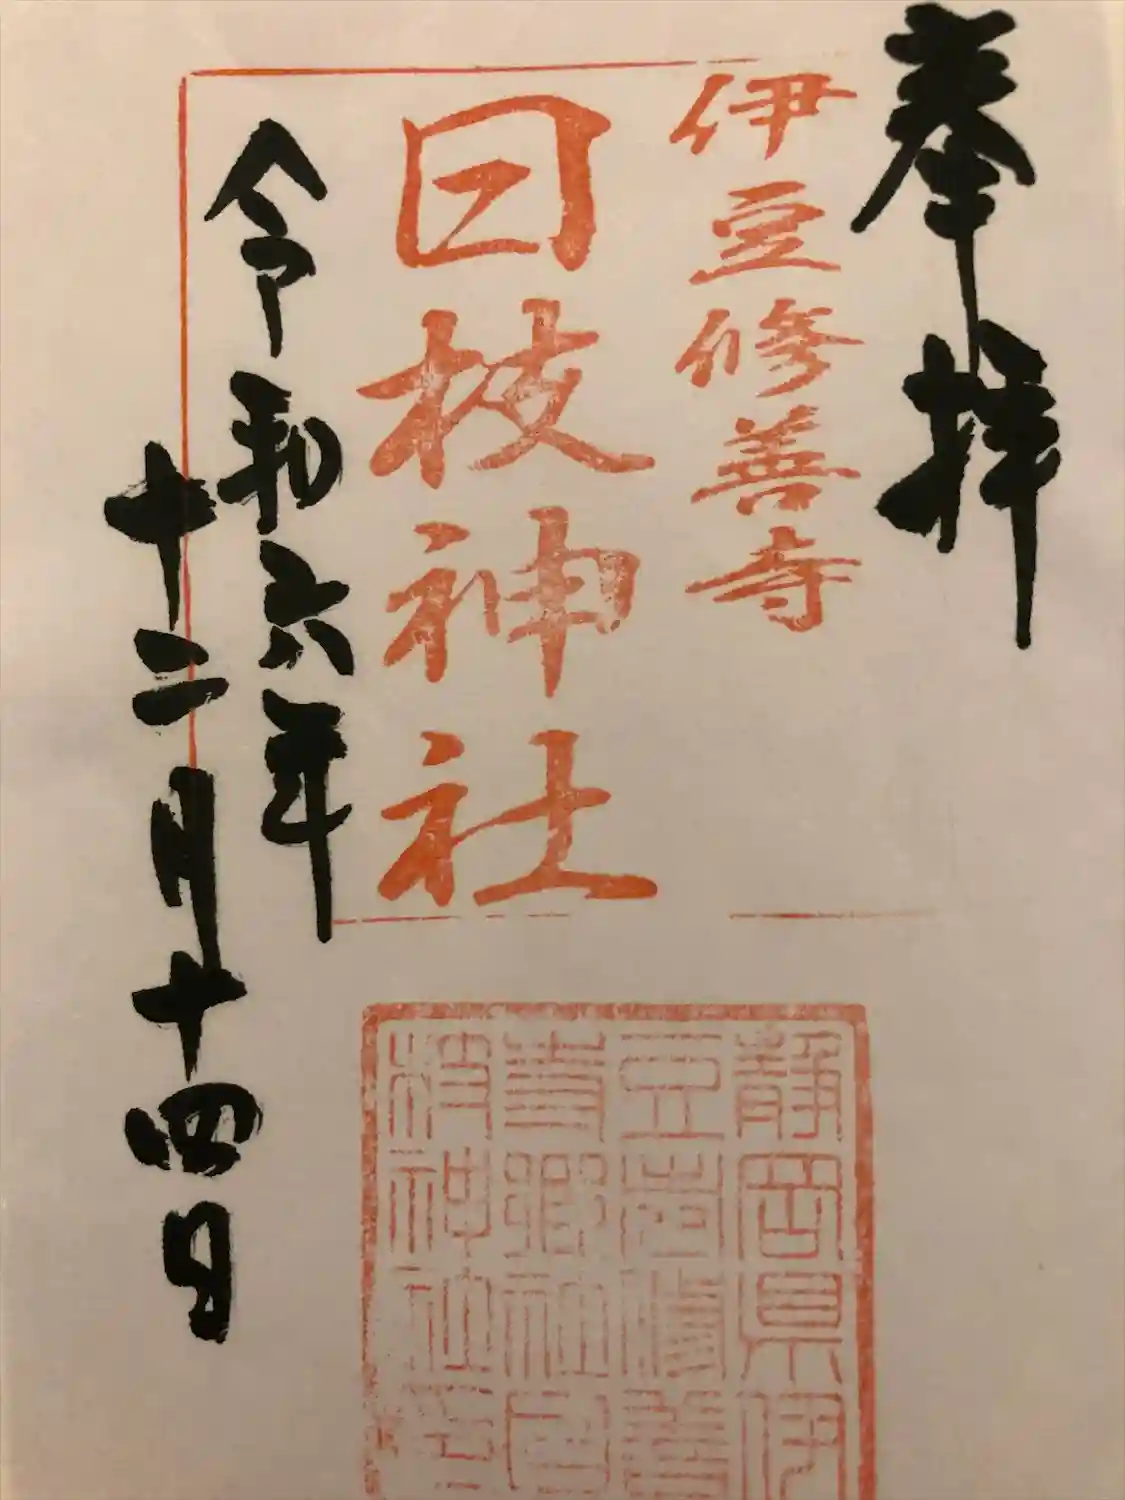 奉拝
伊豆修善寺
日枝神社
令和六年
十二月十四日
静岡県伊
豆市修善
寺郷社日
枝神社印